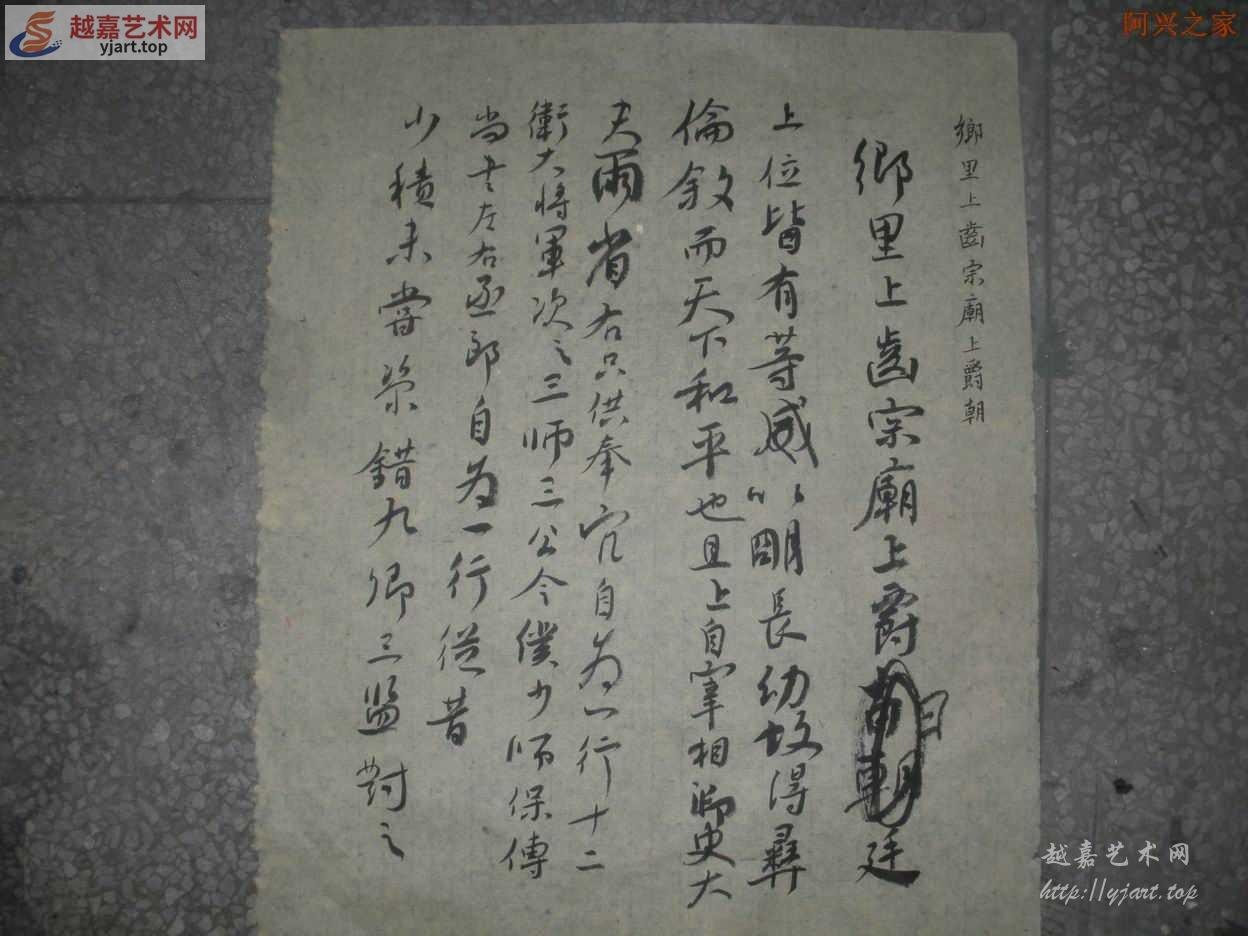 越嘉艺术网
yjart.top
阿兴之家
鄉里上齒宗廟上爵朝
鄉里上齒宗廟上爵朝廷
上位皆有等威以明長幼故得彝
倫敘而天下和平也且上自宰相御史大
夫兩省右只供奉官自為一行十二
衛大將軍次之三师三公令僕少师保傅
尚書左右丞郎自為一行從昔
以積未嘗紊錯九卿三监對之
越嘉艺术网
http://yjart.top